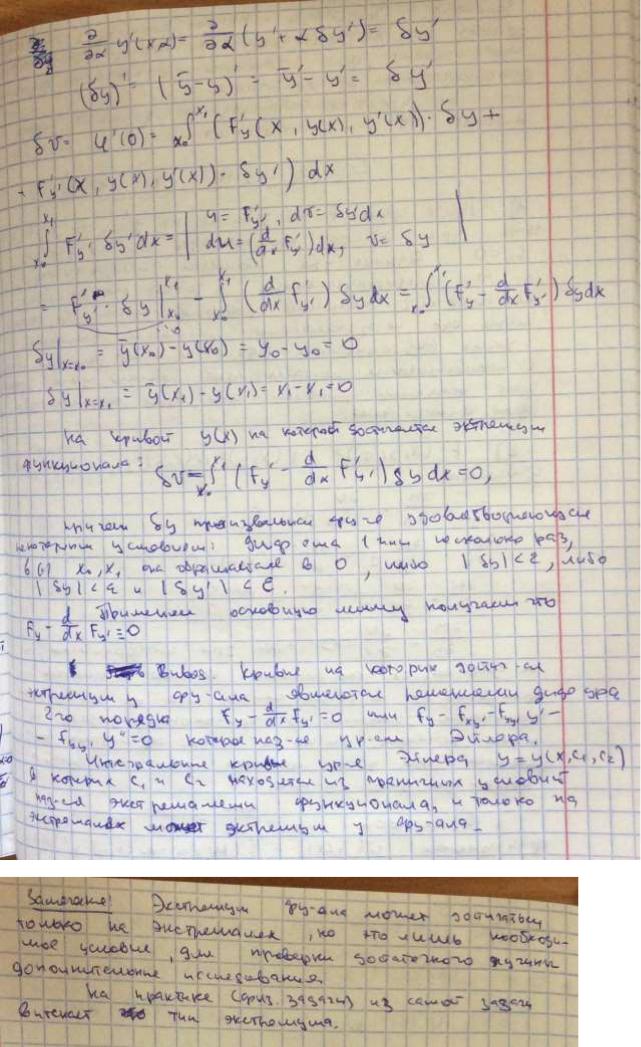 ∂/∂α y'(x,α) = ∂/∂α (y' + α δy') = δy'
(δy)' = (ȳ-y)' = ȳ' - y' = δy'
δv = φ'(0) = ∫_{x₀}^{x₁} (F'_y (x, y(x), y'(x)) · δy +
+ F'_{y'} (x, y(x), y'(x)) · δy') dx
∫_{x₀}^{x₁} F'_{y'} δy' dx = | u = F'_{y'}, dv = δy'dx
du = (d/dx F'_{y'}) dx, v = δy |
= F'_{y'} · δy |_{x₀}^{x₁} - ∫_{x₀}^{x₁} (d/dx F'_{y'}) δy dx = ∫_{x₀}^{x₁} (F'_y - d/dx F'_{y'}) δy dx
δy|_{x=x₀} = ȳ(x₀) - y(x₀) = y₀ - y₀ = 0
δy|_{x=x₁} = ȳ(x₁) - y(x₁) = y₁ - y₁ = 0
на кривой y(x) на которой достигается экстремум
функционала:
δv = ∫_{x₀}^{x₁} (F'_y - d/dx F'_{y'}) δy dx = 0,
причем δy произвольная фу-ция удовлетворяющая
некоторым условиям: дифф она 1 или несколько раз,
в x₀, x₁ она обращается в 0, либо |δy| < ε, либо
|δy| < ε и |δy'| < ε.
Применяем основную лемму получаем что
F_y - d/dx F_{y'} ≡ 0
Вывод. Кривые на которых достиг-ся
экстремум у фу-ала являются решениями дифф ура
2го порядка F_y - d/dx F_{y'} = 0 или F_y - F_{xy'} - F_{yy'} y' -
- F_{y'y'} y'' = 0 которое наз-ся ур-ем Эйлера.
Интегральные кривые ур-е Эйлера y = y(x, c₁, c₂)
в которых c₁ и c₂ находятся из граничных условий
наз-ся экстремалями функционала, и только на
экстремалях может экстремум у фу-ала.
Замечание! Экстремум фу-ала может достигаться
только на экстремалях, но это лишь необходи-
мое условие, для проверки достаточного нужны
дополнительные исследования.
На практике (физ. задачи) из самой задачи
вытекает тип экстремума.